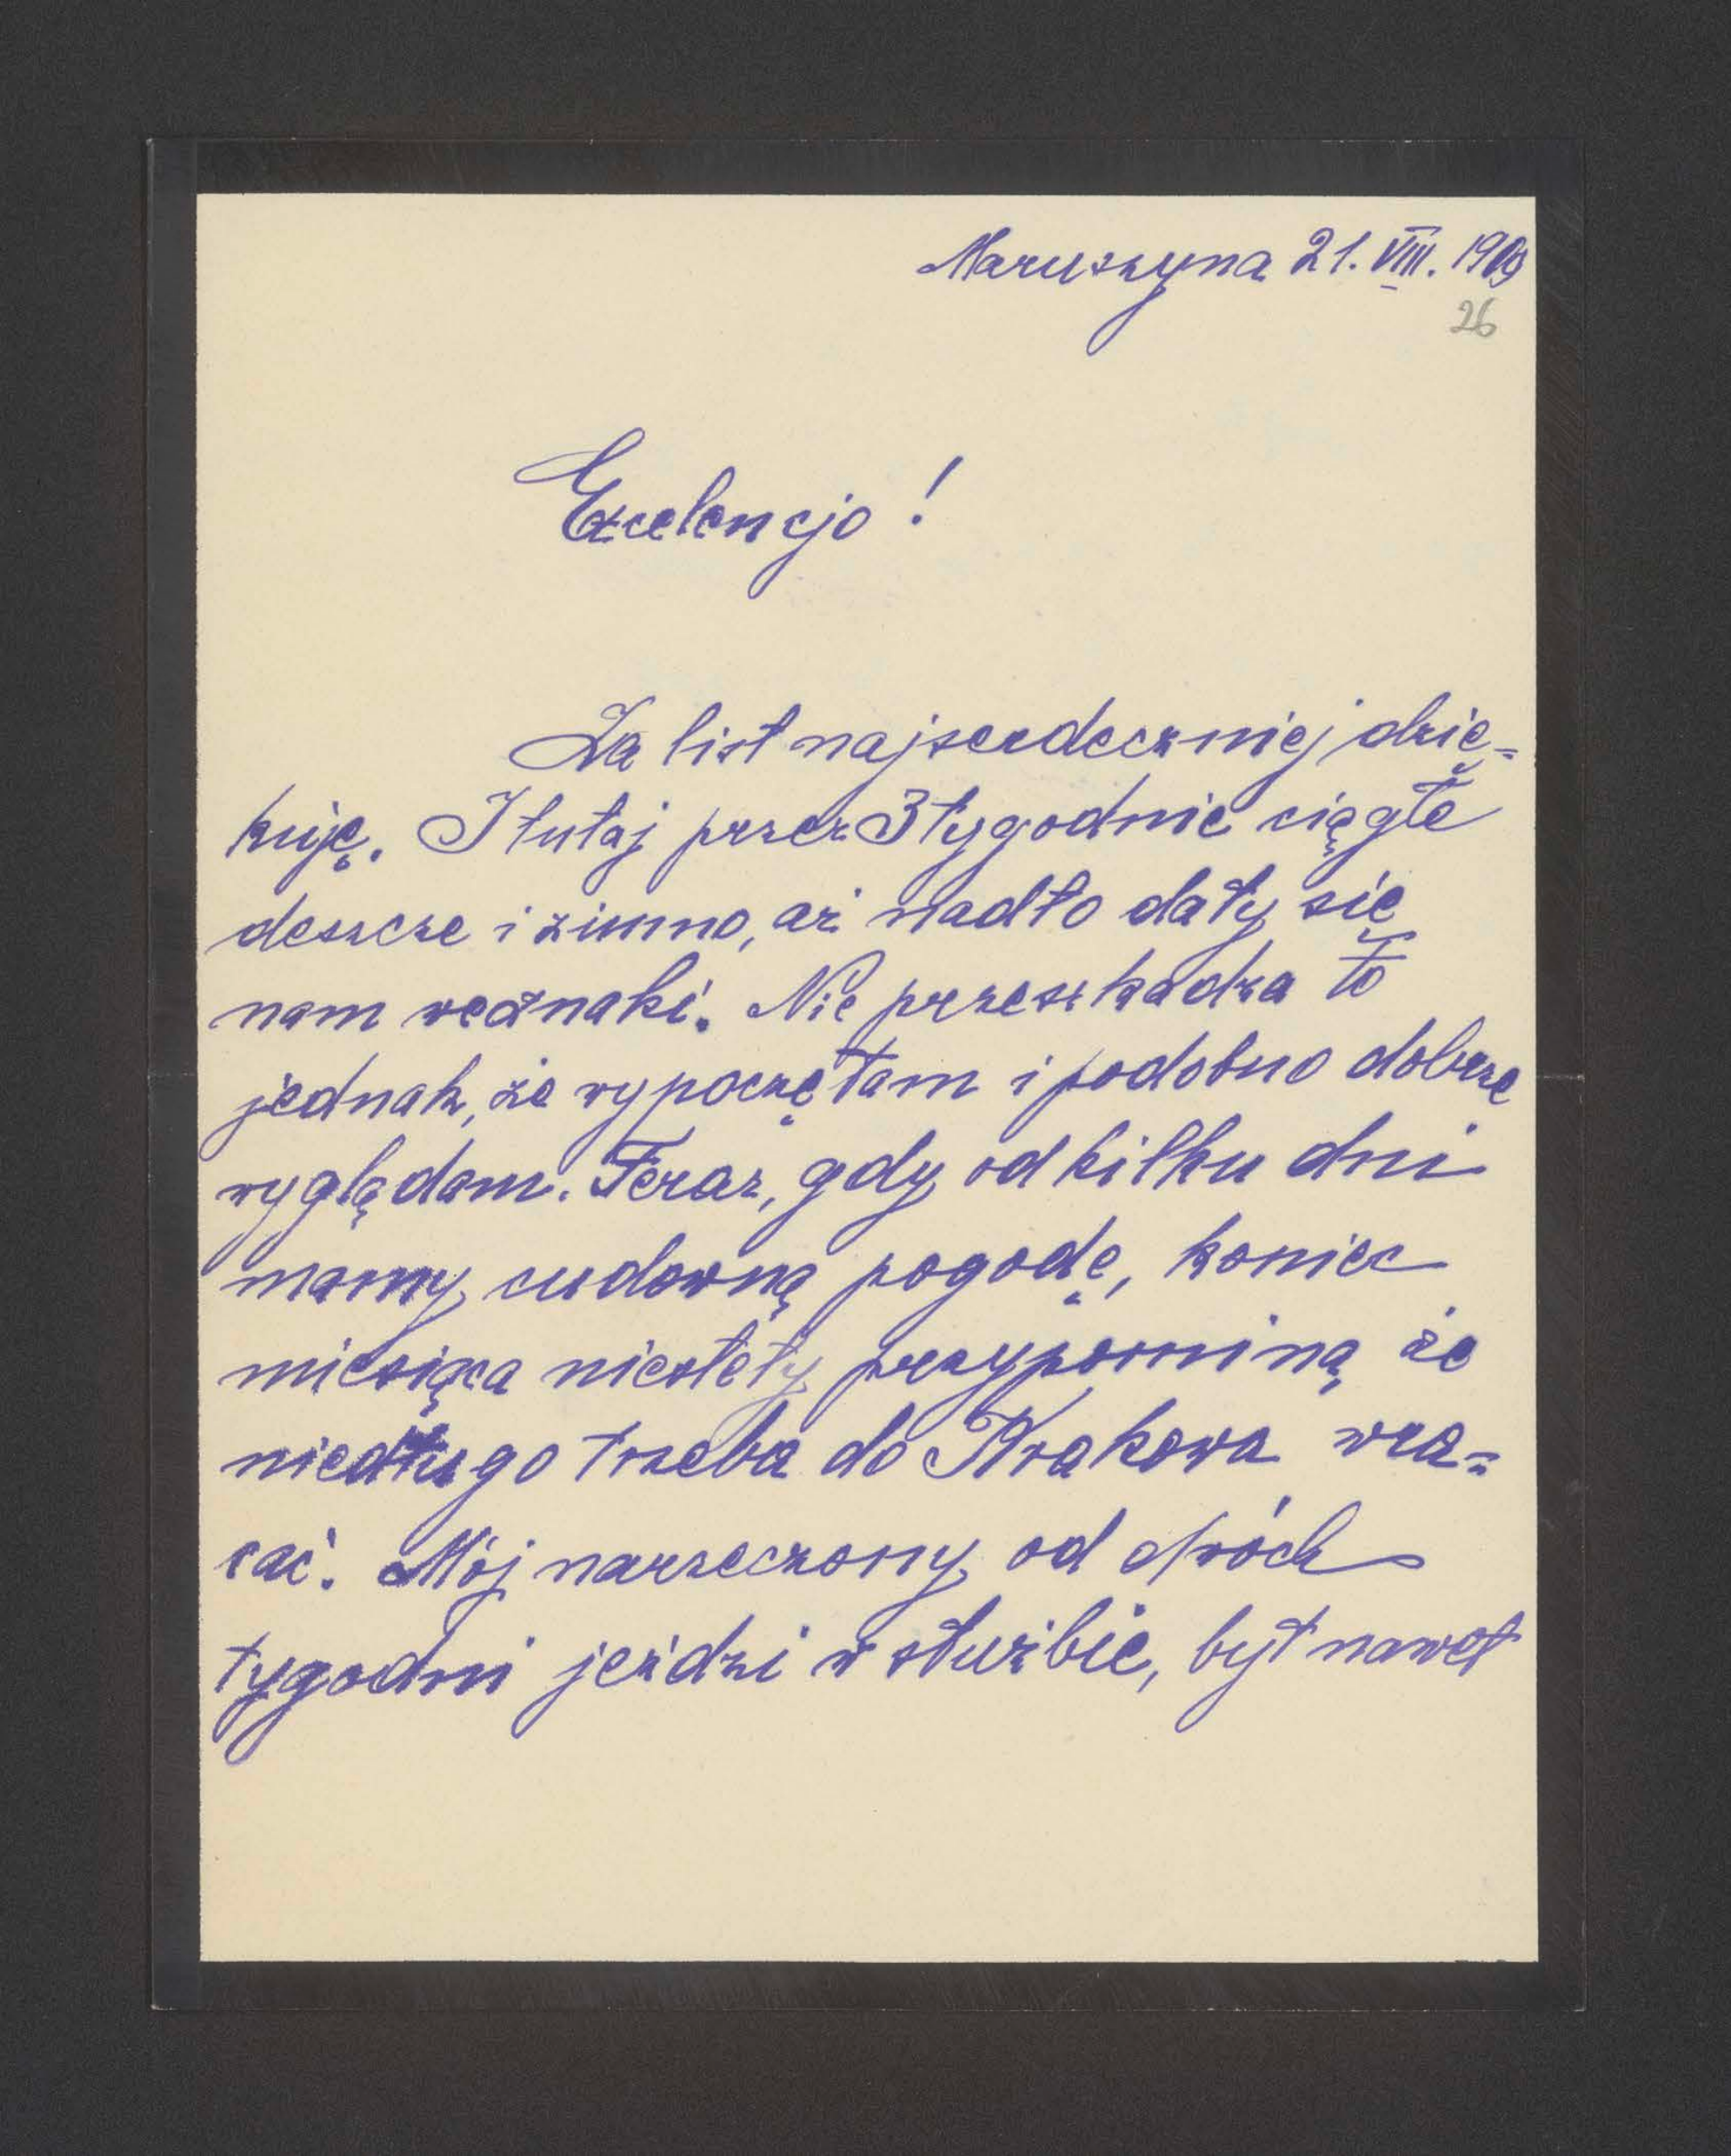 Maruszyna 21. VIII. 1909
26
Excelencjo!
Za list najserdeczniej dzię=
kuję. I tutaj przez 3 tygodnie ciągłe
deszcze i zimno, aż nadto dały się
nam weznaki. Nie przeszkadza to
jednak, że wypoczęłam i podobno dobrze
wyglądam. Teraz, gdy od kilku dni
mamy cudowną pogodę, koniec
miesiąca niestety przypomina, że
niedługo trzeba do Krakowa wra=
cać. Mój narzeczony od dwóch
tygodni jeździ w służbie, był nawet